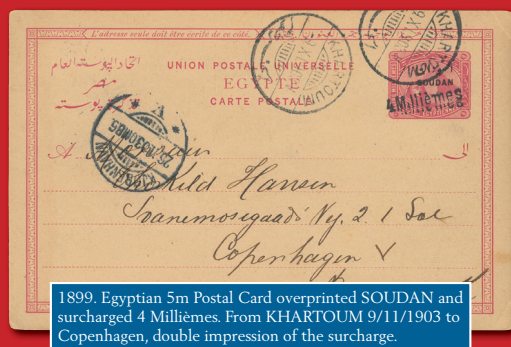 L'adresse seule doit être écrite de ce côté.
اتحاد البوستة العام
UNION POSTALE UNIVERSELLE
مصر
EGYPTE
CARTE POSTALE
KHARTOUM
KHARTOUM
SOUDAN
4 Millièmes
KJØBENHAVN
A
الى
Kild Hansen
Svanemosegaards Vej. 2. 1 Sal
Copenhagen V
1899. Egyptian 5m Postal Card overprinted SOUDAN and
surcharged 4 Millièmes. From KHARTOUM 9/11/1903 to
Copenhagen, double impression of the surcharge.